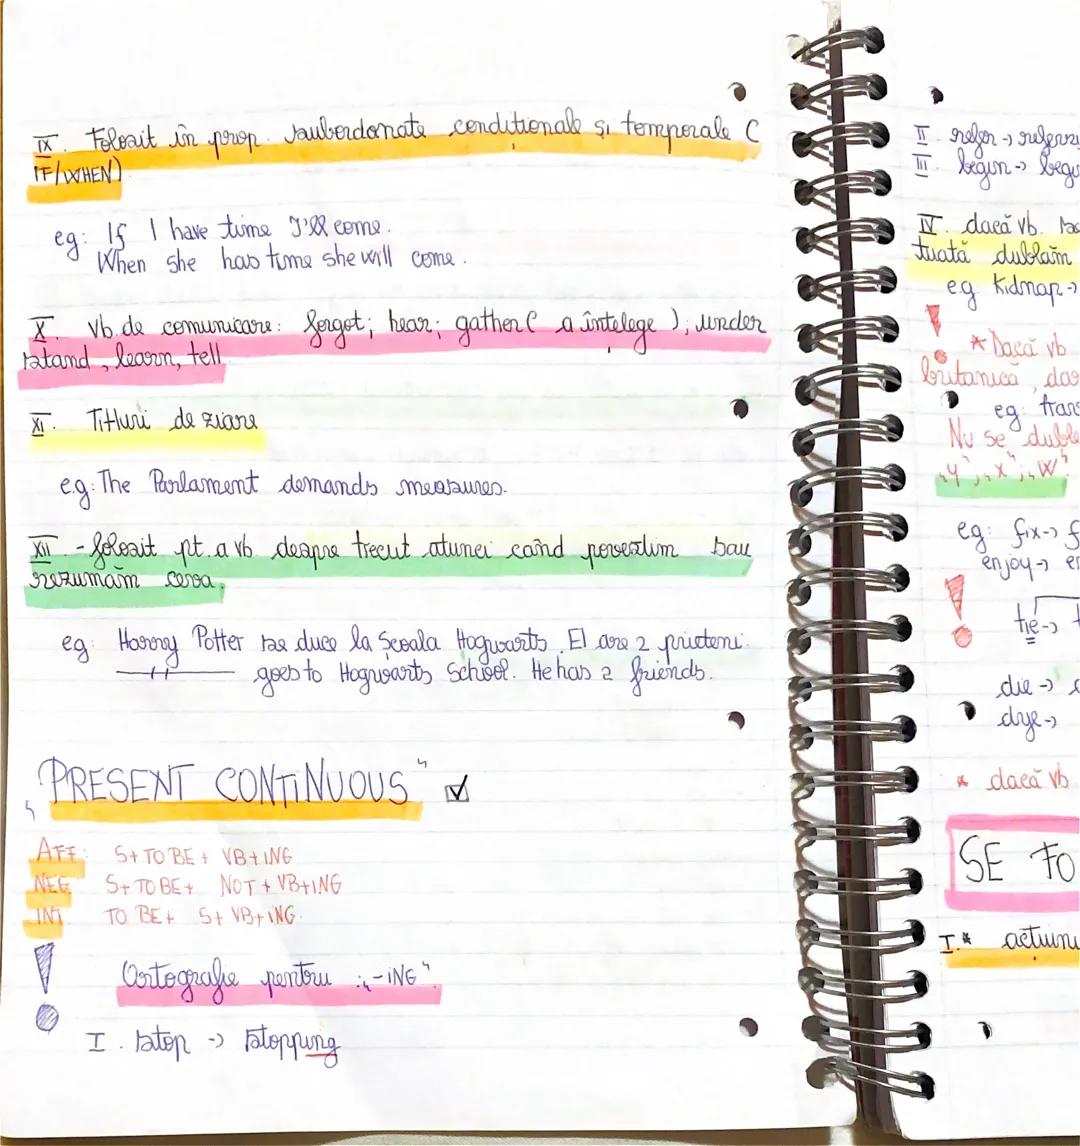 IX. Folosit în prop. suberdonate condiționale și temporale (
IF/WHEN)
eg: If I have time I'll come.
When she has time she will come.
X. vb. de comunicare: forgot; hear; gather( a întelege ); under
stand, learn, tell
XI. Titluri de ziare
e.g: The Parlament demands measures.
XII. - folosit pt. a vb despre trecut atunci când povestim sau
rezumăm ceva.
eg: Harry Potter se duce la Școala Hogwarts. El are 2 prieteni.
goes to Hogwarts School. He has 2 friends.
„PRESENT CONTINUOUS" ☑
AFF: S+ TO BE + VB+ING
NEG S+ TO BE+ NOT + VB+ING
INT TO BE+ S+ VB+ING.
! Ortografie pentru :„-ING"
I. stop -> stopping
II. refer -> referr
III. begin ->
IV. dacă vb.
tuată dublăm
e.g. Kidnap->
! * Dacă vb
britanică, dar
eg: 
Nu se
„y", „x", „w"
eg: fix->
enjoy->
! tie->
die ->
dye->
* dacă vb
SE FO
I.* acțiuni